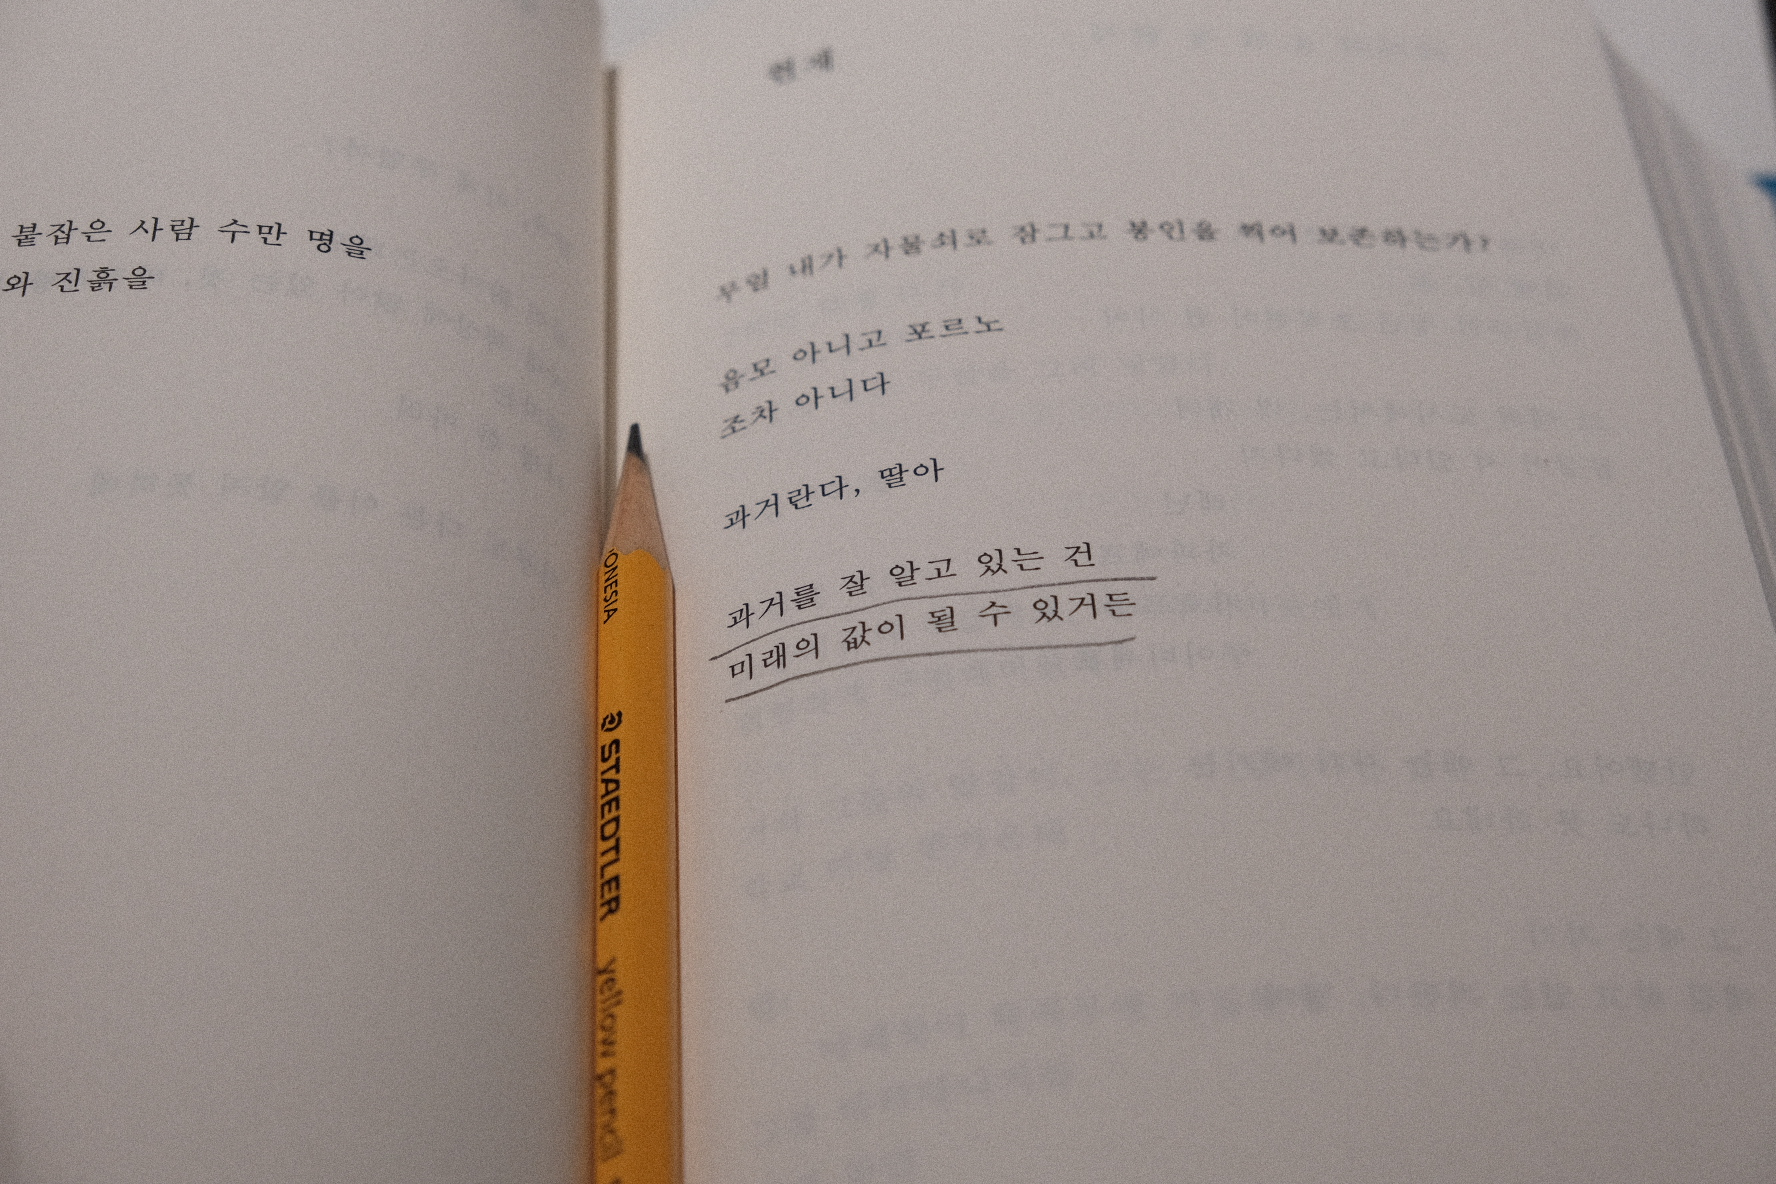 붙잡은 사람 수만 명을
와 진흙을
현재
무얼 내가 자물쇠로 잠그고 봉인을 찍어 보존하는가?
음모 아니고 포르노
조차 아니다
과거란다, 딸아
과거를 잘 알고 있는 건
미래의 값이 될 수 있거든
STAEDTLER yellow pencil